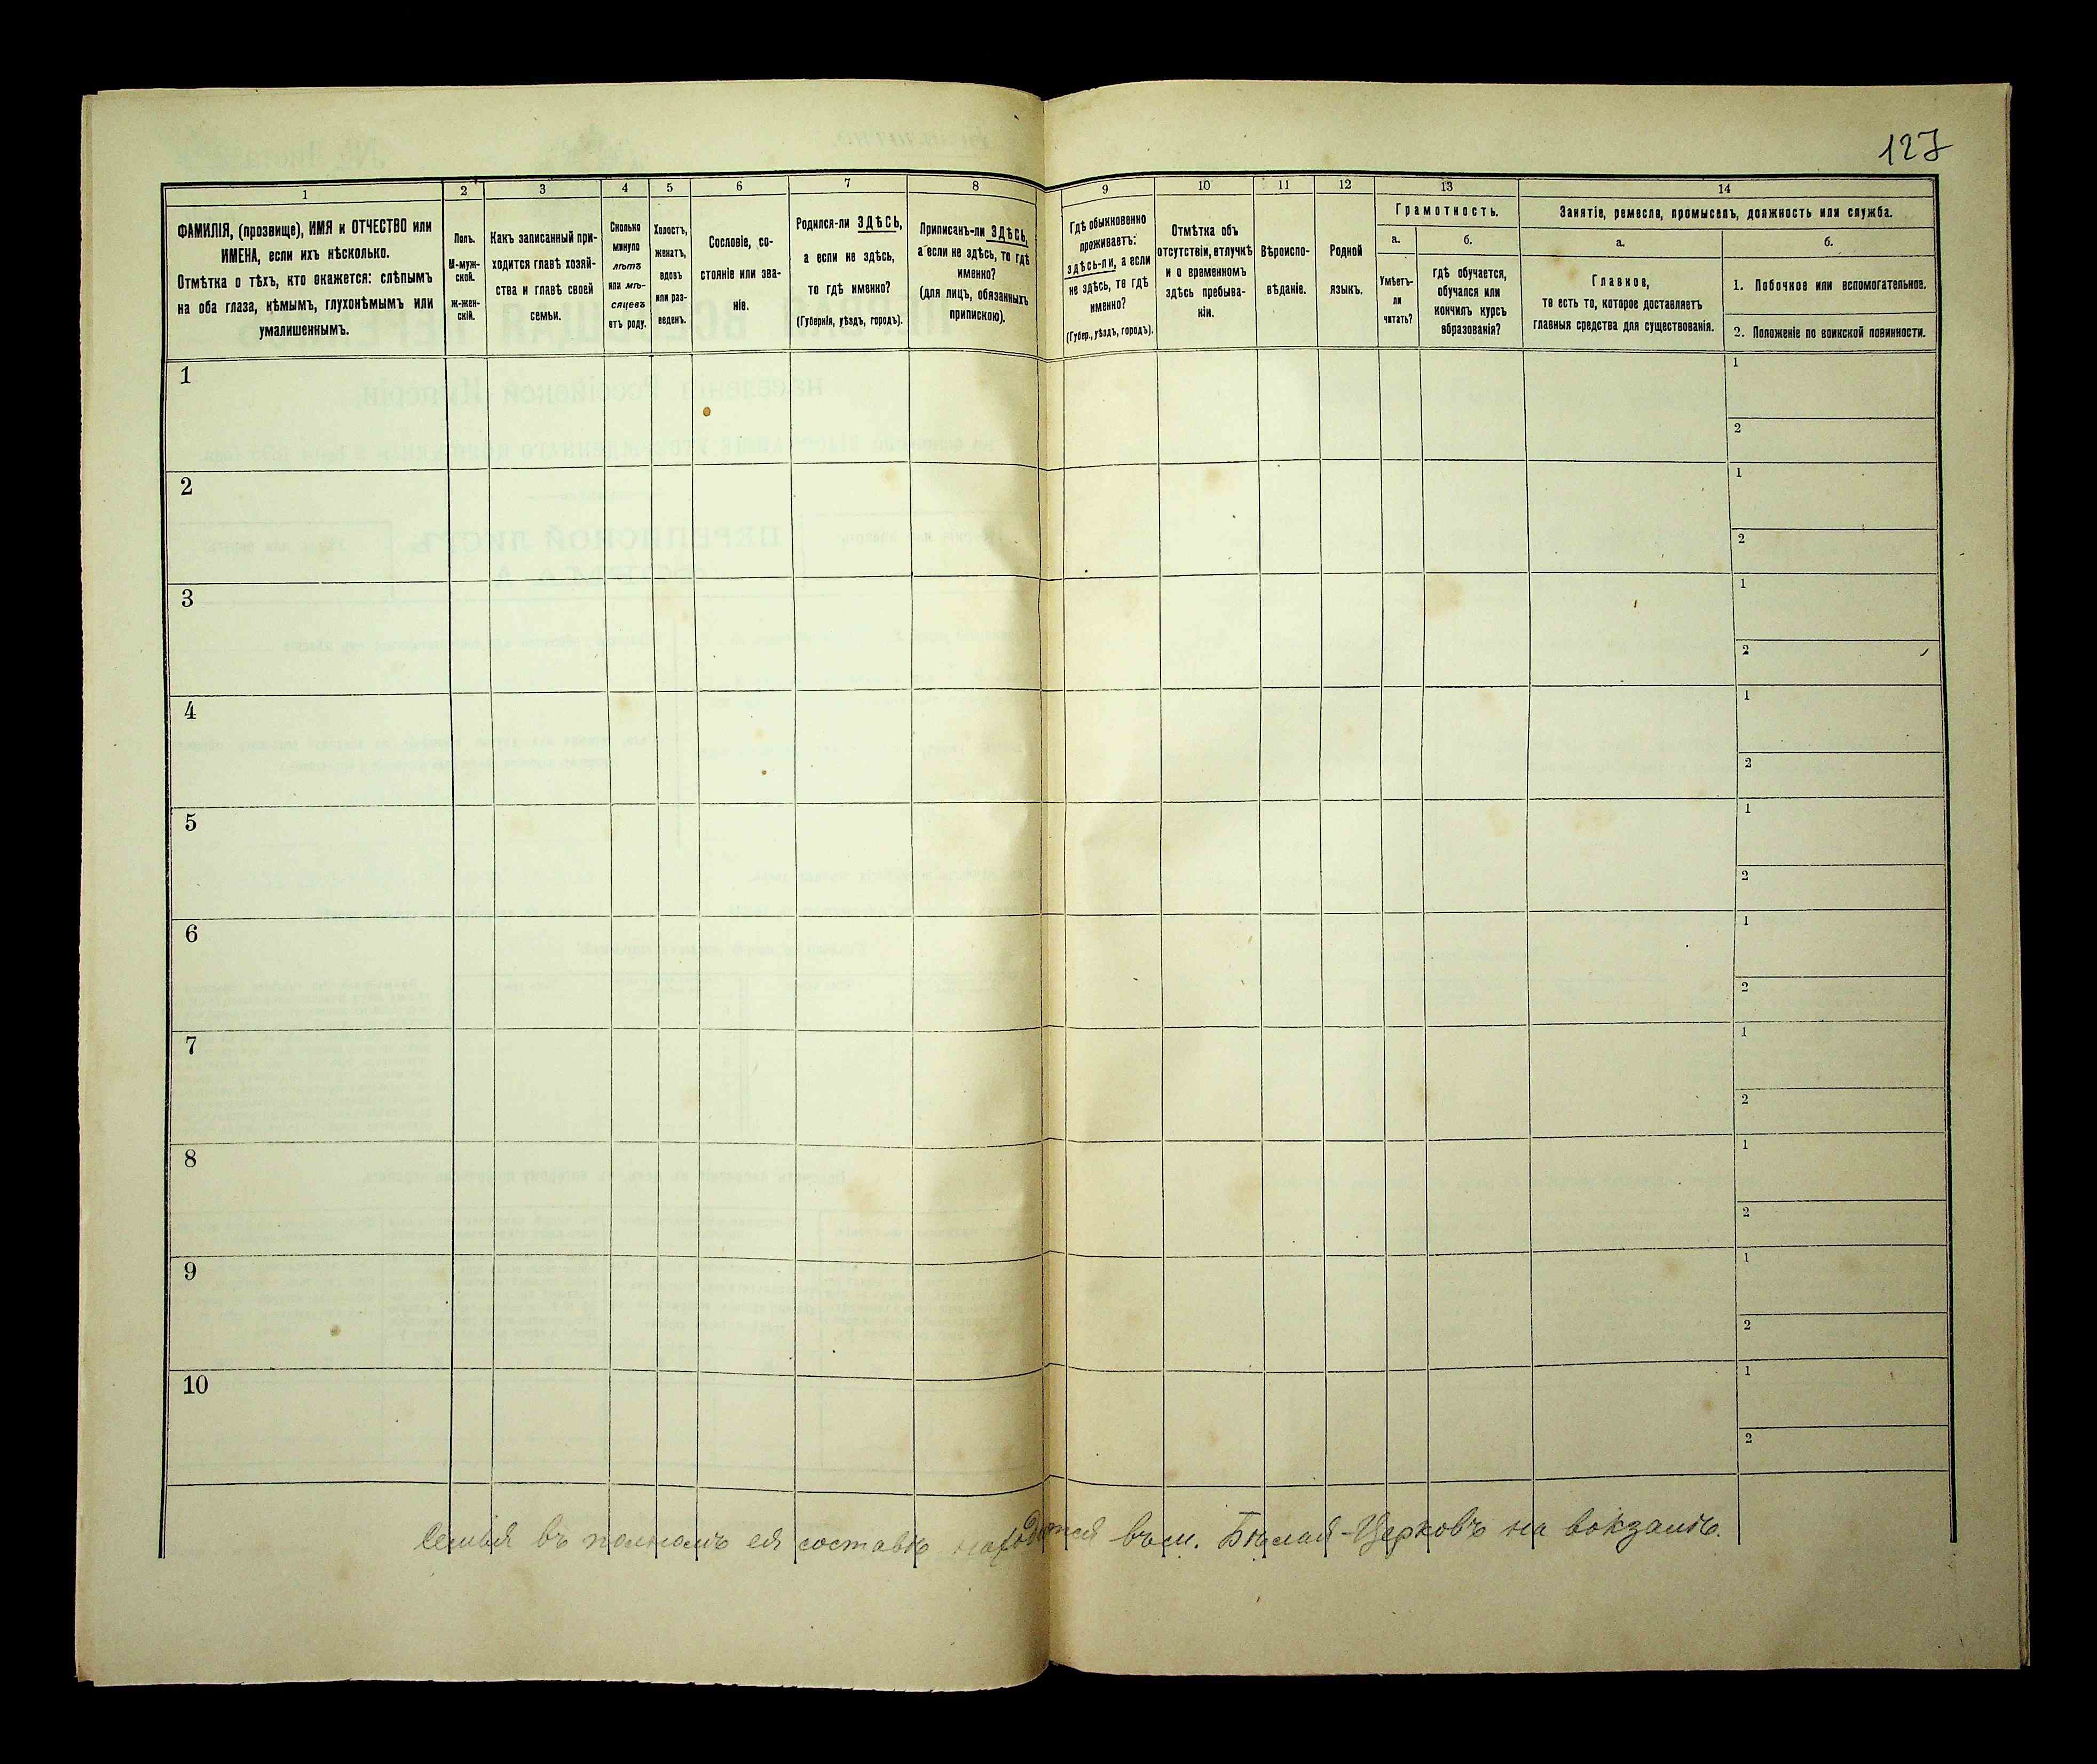 127
1
2
3
4
5
6
7
8
9
10
11
12
13
14
ФАМИЛІЯ, (прозвище), ИМЯ и ОТЧЕСТВО или
ИМЕНА, если ихъ нѣсколько.
Отмѣтка о тѣхъ, кто окажется: слѣпымъ
на оба глаза, нѣмымъ, глухонѣмымъ или
умалишеннымъ.
Полъ.
М-муж-
ской.
ж-жен-
скій.
Какъ записанный при-
ходится главѣ хозяй-
ства и главѣ своей
семьи.
Сколько
минуло
лѣтъ
или мѣ-
сяцевъ
отъ роду.
Холостъ,
женатъ,
вдовъ
или раз-
веденъ.
Сословіе, со-
стояніе или зва-
ніе.
Родился-ли ЗДѢСЬ,
а если не здѣсь,
то гдѣ именно?
(Губернія, уѣздъ, городъ).
Приписанъ-ли ЗДѢСЬ,
а если не здѣсь, то гдѣ
именно?
(для лицъ, обязанныхъ
припискою).
Гдѣ обыкновенно
проживаетъ:
здѣсь-ли, а если
не здѣсь, то гдѣ
именно?
(Губер., уѣздъ, городъ).
Отмѣтка объ
отсутствіи, отлучкѣ
и о временномъ
здѣсь пребыва-
ніи.
Вѣроиспо-
вѣданіе.
Родной
языкъ.
Грамотность.
а.
Умѣетъ-
ли
читать?
б.
гдѣ обучается,
обучался или
кончилъ курсъ
образованія?
Занятіе, ремесло, промыселъ, должность или служба.
а.
Главное,
то есть то, которое доставляетъ
главныя средства для существованія.
б.
1. Побочное или вспомогательное.
2. Положеніе по воинской повинности.
1
1
2
2
1
2
3
1
2
4
1
2
5
1
2
6
1
2
7
1
2
8
1
2
9
1
2
10
1
2
Семья въ полномъ ея составѣ находится въ м. Бѣлая-Церковъ на вокзалѣ.